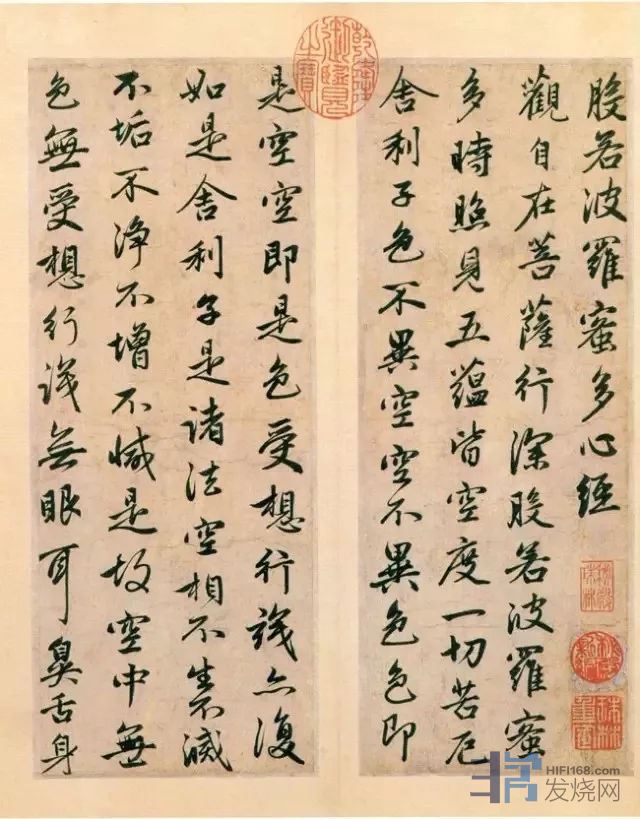 乾隆御覽之寶
般若波羅蜜多心經
觀自在菩薩行深般若波羅蜜
多時照見五蘊皆空度一切苦厄
舍利子色不異空空不異色色即
是空空即是色受想行識亦復
如是舍利子是諸法空相不生不滅
不垢不淨不增不減是故空中無
色無受想行識無眼耳鼻舌身
HIFI168.com
发烧网